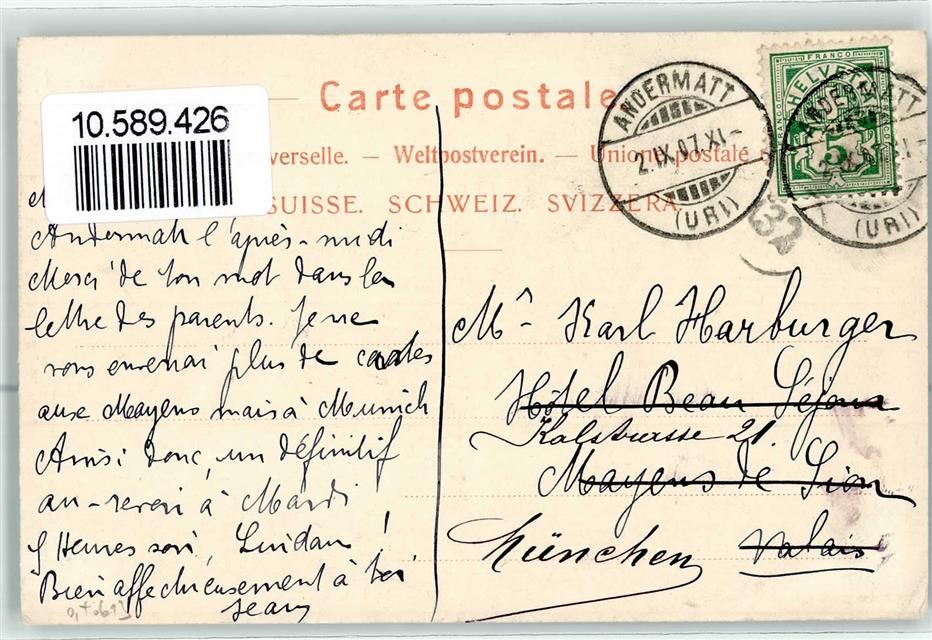 10.589.426
Carte postale
verselle. — Weltpostverein. — Union postale
SUISSE. SCHWEIZ. SVIZZERA
ANDERMATT
2.IX.07.XI-
(URI)
FRANCO
HELVETIA
5
ANDERMATT
(URI)
32
Andermatt l'après-midi
Merci de ton mot dans la
lettre des parents. Je ne
vous enverrai plus de cartes
aux Mayens mais à Munich
Ainsi donc, un définitif
au-revoir à Mardi
9 Heures soir, Lindau!
Bien affectueusement à toi
Jean
Mr Karl Harburger
Hôtel Beau Séjour
21.
Mayens de Sion
München
Valais